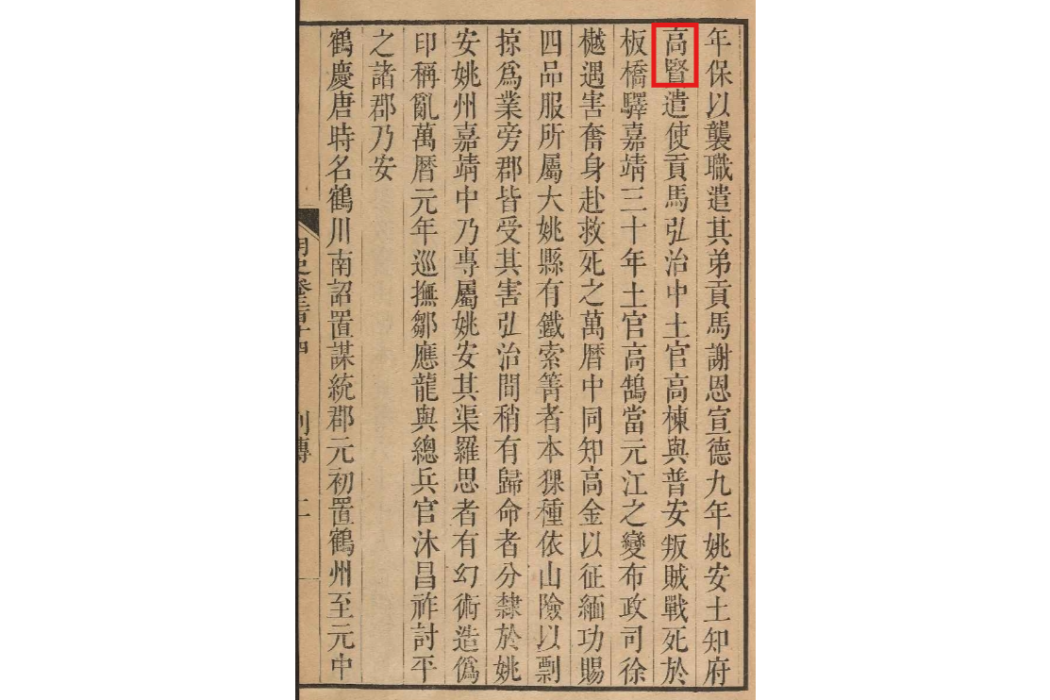 年保以襲職遣其弟貢馬謝恩宣德九年姚安土知府
高賢遣使貢馬弘治中土官高棟與普安叛賊戰死於
板橋驛嘉靖三十年土官高鵠當元江之變布政司徐
樾遇害奮身赴救死之萬曆中同知高金以征緬功賜
四品服所屬大姚縣有鐵索箐者本猓種依山險以剽
掠爲業旁郡皆受其害弘治間稍有歸命者分隸於姚
安姚州嘉靖中乃專屬姚安其渠羅思者有幻術造僞
印稱亂萬曆元年巡撫鄒應龍與總兵官沐昌祚討平
之諸郡乃安
鶴慶唐時名鶴川南詔置謀統郡元初置鶴州至元中
明史卷三百十四 列傳 二